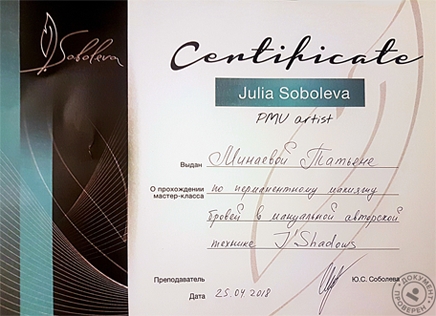 J.Soboleva
Certificate
Julia Soboleva
PMU artist
Выдан Минаевой Татьяне
О прохождении мастер-класса по перманентному макияжу
бровей в мануальной авторской
технике J'Shadows
Преподаватель Ю.С. Соболева
Дата 25.04.2018
ДОКУМЕНТ ПРОВЕРЕН